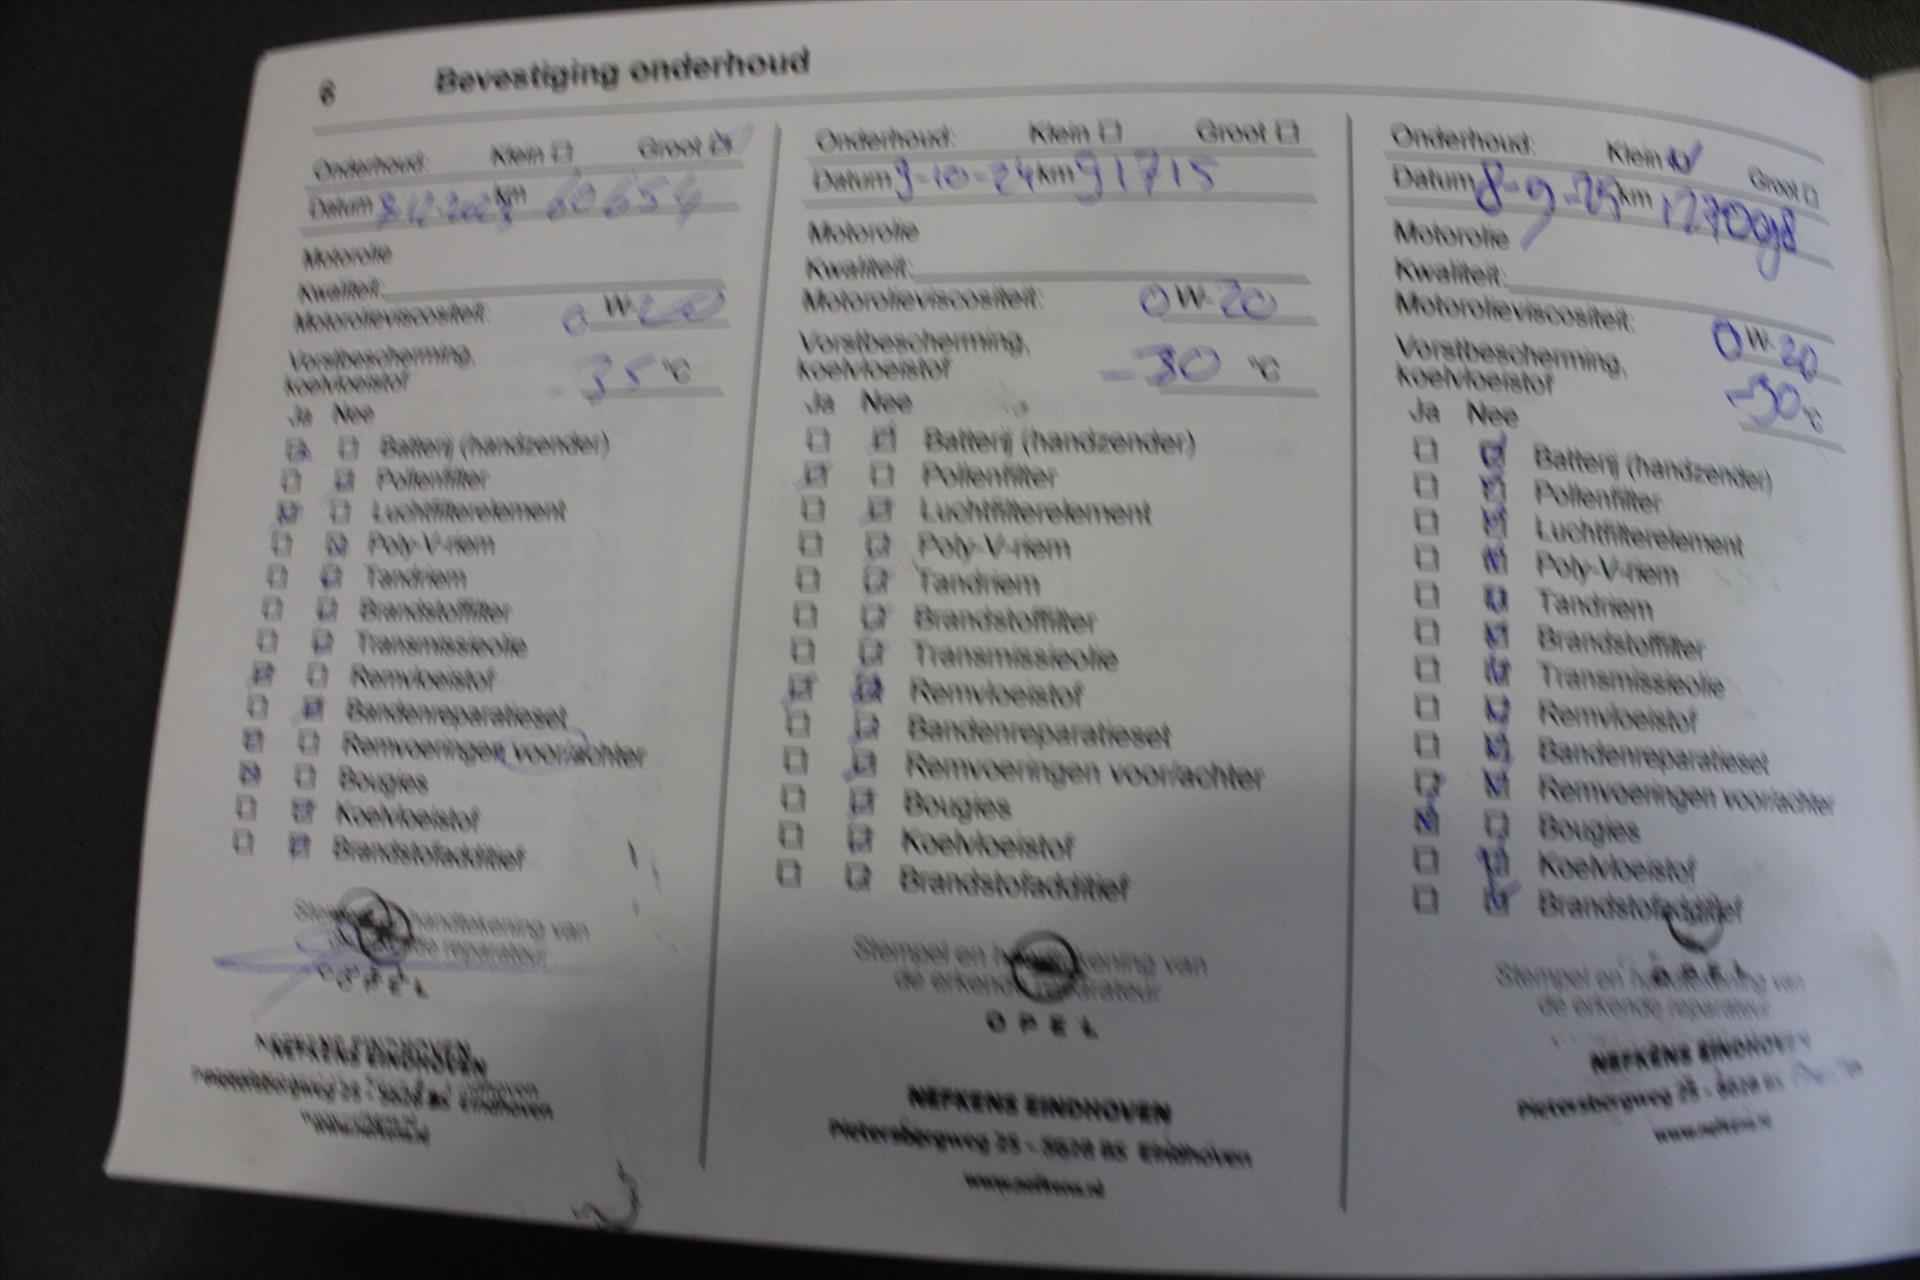 6 Bevestiging onderhoud
Onderhoud: Klein Groot
Datum km 60654
Motorolie
Kwaliteit:
Motorolieviscositeit: 0 W-20
Vorstbescherming,
koelvloeistof -35 °C
Ja Nee
Batterij (handzender)
Pollenfilter
Luchtfilterelement
Poly-V-riem
Tandriem
Brandstoffilter
Transmissieolie
Remvloeistof
Bandenreparatieset
Remvoeringen voor/achter
Bougies
Koelvloeistof
Brandstofadditief
handtekening van
reparateur
OPEL
NEFKENS EINDHOVEN
Eindhoven
Onderhoud: Klein Groot
Datum 9-10-24 km 91715
Motorolie
Kwaliteit:
Motorolieviscositeit: 0 W-20
Vorstbescherming,
koelvloeistof -30 °C
Ja Nee
Batterij (handzender)
Pollenfilter
Luchtfilterelement
Poly-V-riem
Tandriem
Brandstoffilter
Transmissieolie
Remvloeistof
Bandenreparatieset
Remvoeringen voor/achter
Bougies
Koelvloeistof
Brandstofadditief
Stempel en handtekening van
de erkende reparateur
OPEL
NEFKENS EINDHOVEN
Pietersbergweg 25 - 5628 BS Eindhoven
www.nefkens.nl
Onderhoud: Klein Groot
Datum 8-9-25 km
Motorolie
Kwaliteit:
Motorolieviscositeit: 0 W-20
Vorstbescherming,
koelvloeistof -30 °C
Ja Nee
Batterij (handzender)
Pollenfilter
Luchtfilterelement
Poly-V-riem
Tandriem
Brandstoffilter
Transmissieolie
Remvloeistof
Bandenreparatieset
Remvoeringen voor/achter
Bougies
Koelvloeistof
Brandstofadditief
OPEL
Stempel en handtekening van
de erkende reparateur
NEFKENS EINDHOVEN
Pietersbergweg 25 - 5628 BS
www.nefkens.nl